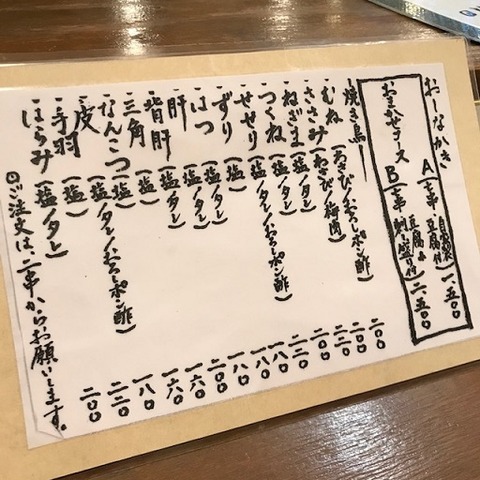 おしながき
おまかせコース
A 七串 自家製豆腐付 一、五〇〇
B 七串 豆腐&刺し盛り付 二、五〇〇
焼き鳥
・むね(わさび/おろしポン酢)二〇〇
・ささみ(わさび/梅肉)二三〇
・ねぎま(塩/タレ)
・つくね(塩/タレ/おろしポン酢)二三〇
・せせり(塩)一八〇
・ずり(塩/タレ)一八〇
・はつ(塩/タレ)一八〇
・肝(塩/タレ)
・背肝(塩/タレ)
・三角(塩/タレ)一六〇
・なんこつ(塩/タレ/おろしポン酢)
・皮(塩/タレ)一八〇
・手羽(塩)二三〇
・はらみ(塩/タレ)二〇〇
◎ご注文は、二串からお願いします。